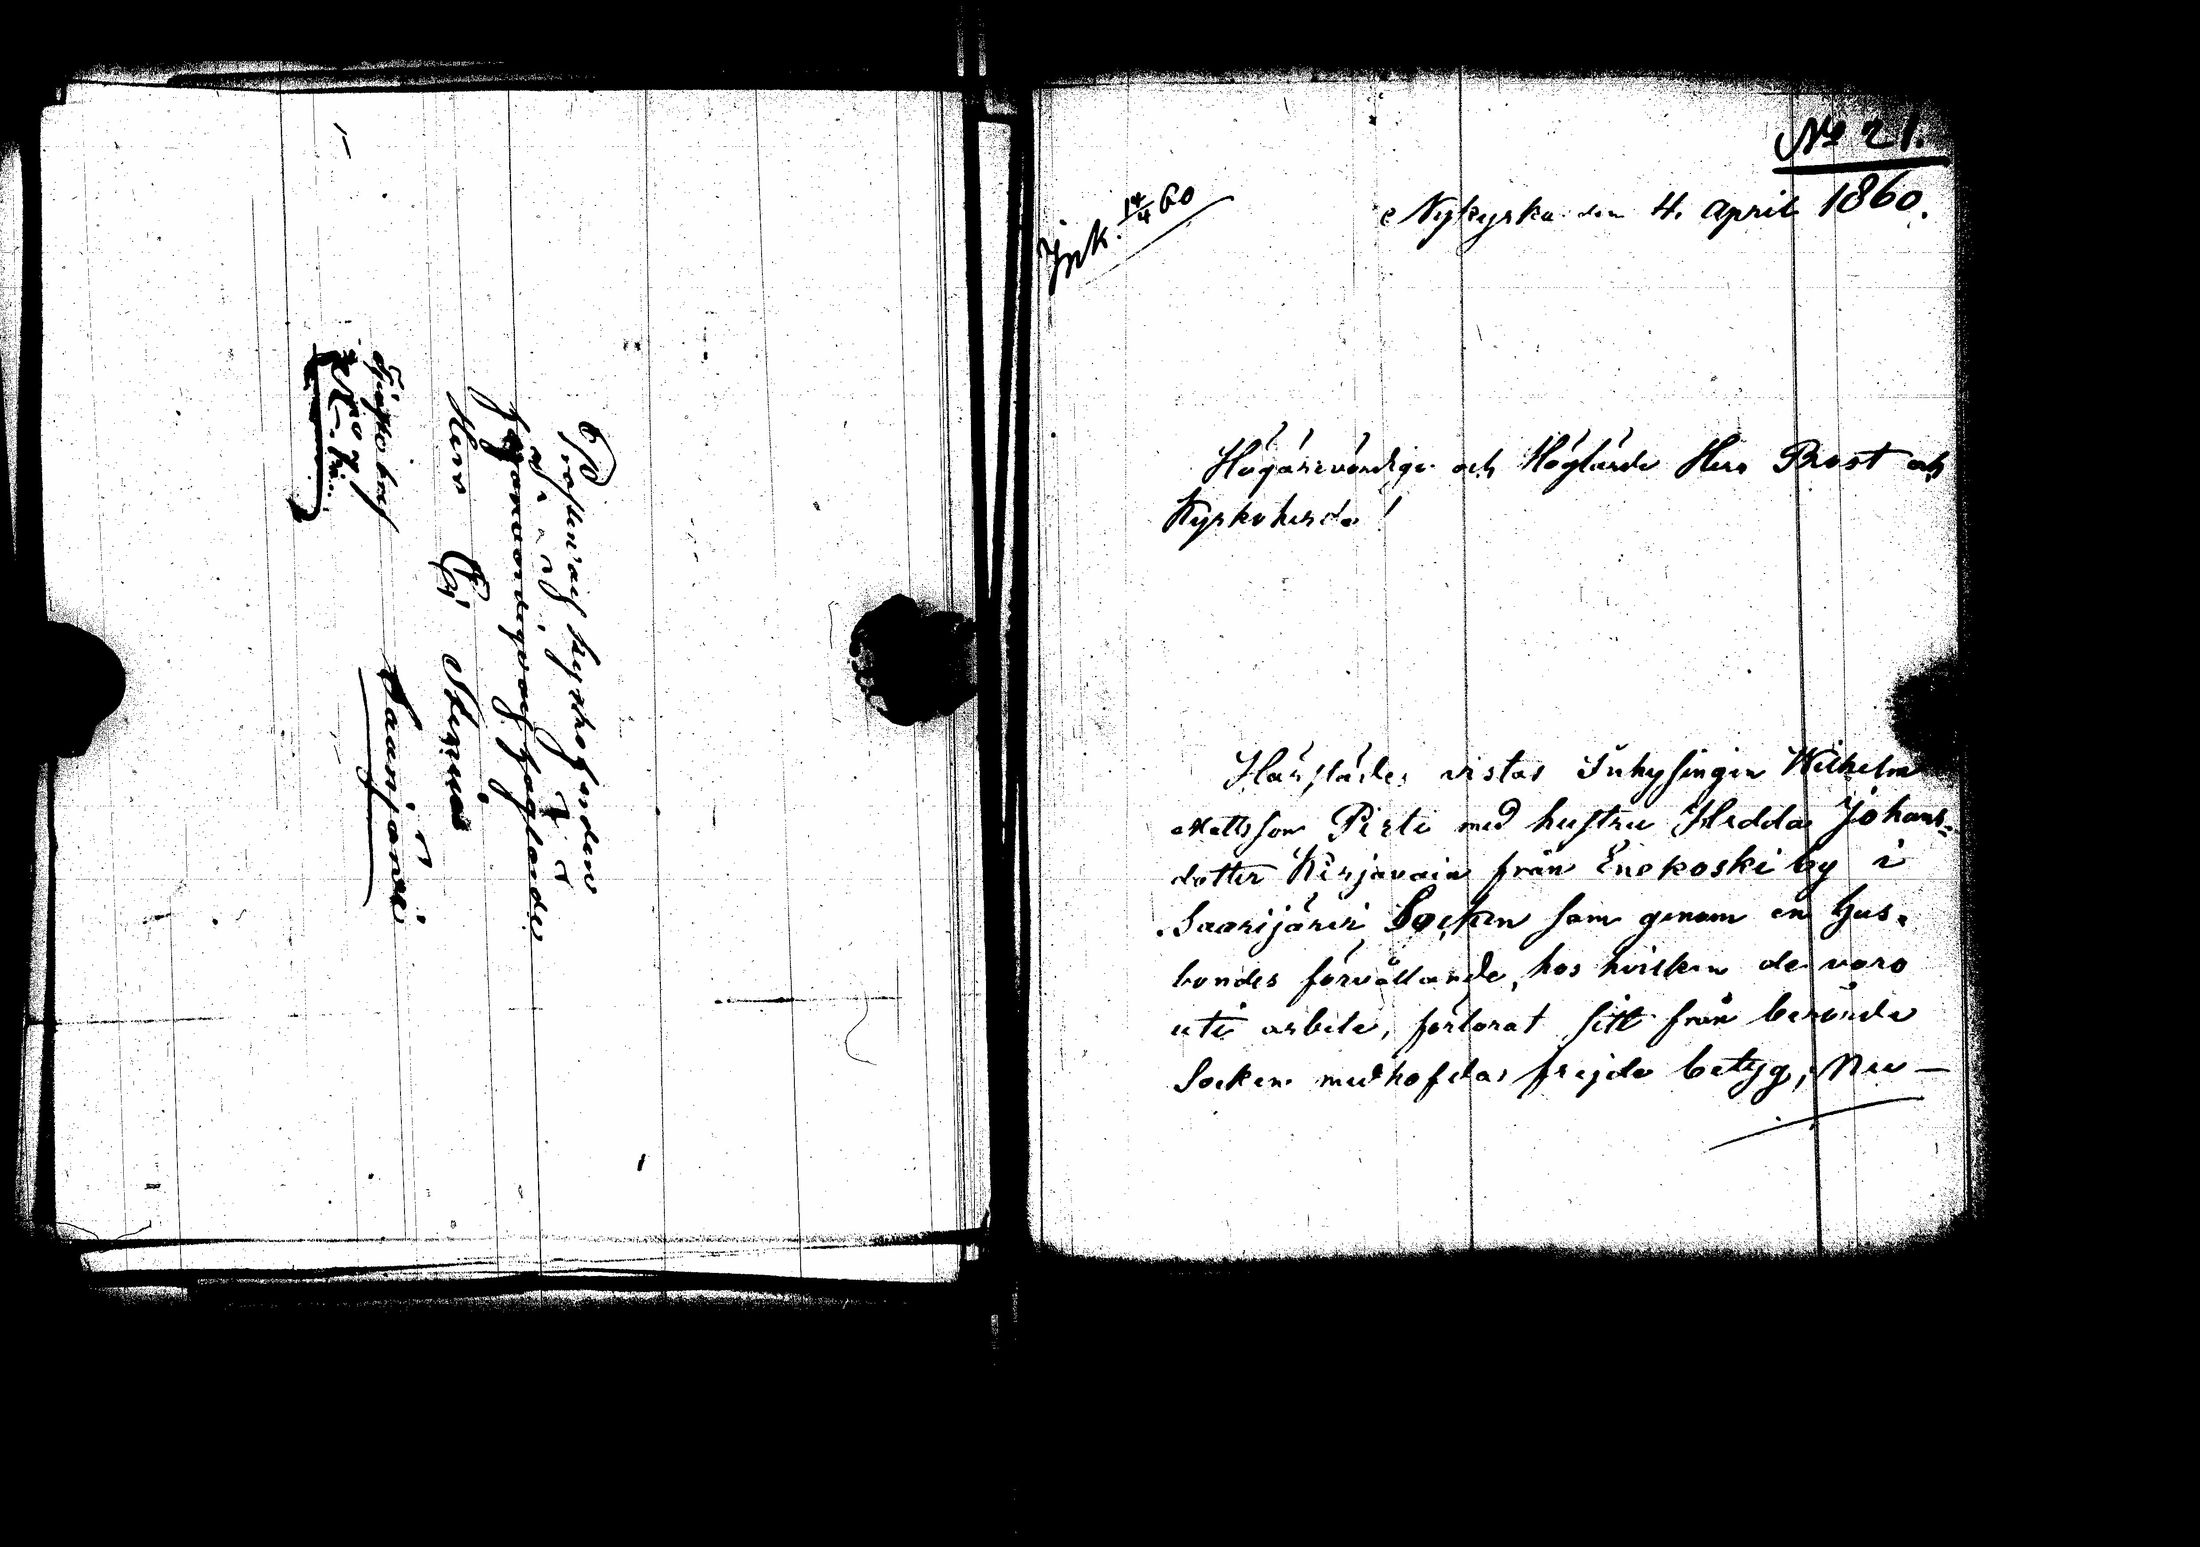 Prosten och Kyrkoherden
Högärevördige och Höglärde
Herr C. Stenius
Saarijärvi
Tjenste bref
Nº 21.
Ink. 14/4 60
Nykyrka den 4. april 1860.
Högärevördige och Höglärde Herr Prost och
Kyrkoherde!
Härstädes vistas Inhysingen Wilhelm
Mattsson Pirte med hustru Hedda Johans-
dotter Kirjavain från Enokoski by i
Saarijärvi Socken som genom en Hus-
bondes förvållande, hos hvilken de varo
uti arbete, förlorat sitt från berörde
Socken medhafda frejde betyg; Nu —